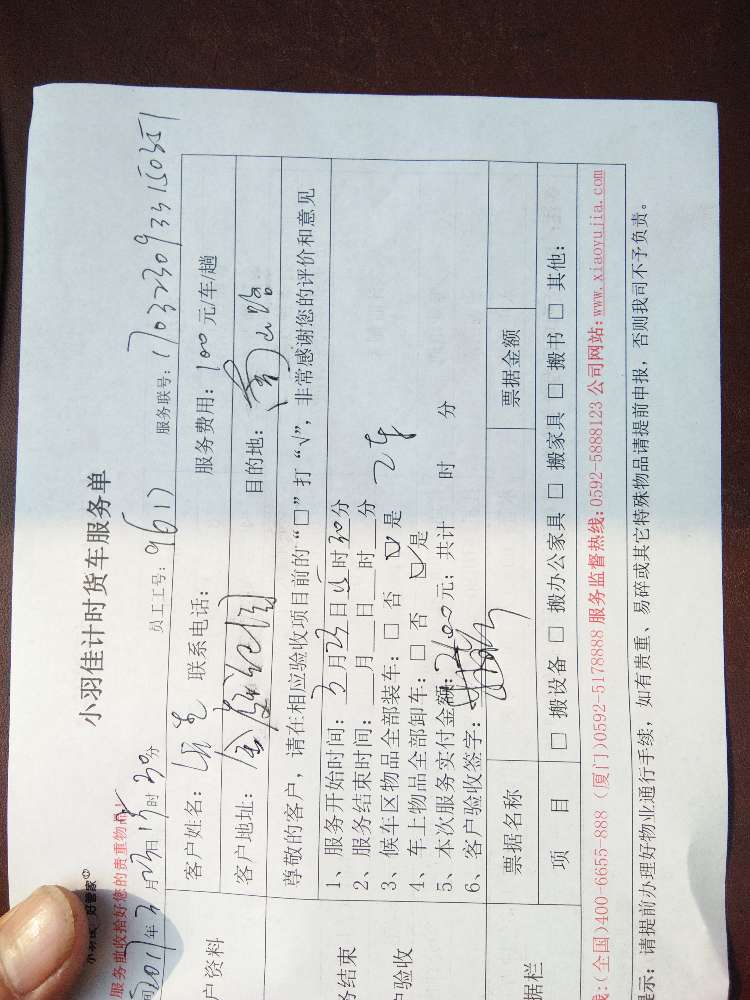 小羽佳 好管家
小羽佳计时货车服务单
服务前收拾好您的贵重物
2017年3月23日15时30分 员工工号：9617 服务联号：1703230933150351
户资料 客户姓名： 联系电话： 服务费用：100元/车/趟
客户地址： 目的地：
尊敬的客户，请在相应验收项目前的“□”打“√”，非常感谢您的评价和意见
务结束
户验收
1、服务开始时间：3月23日15时30分
2、服务结束时间：__月__日__时__分
3、候车区物品全部装车：□ 否 ☑ 是 2车
4、车上物品全部卸车：□ 否 ☑ 是
5、本次服务实付金额：200元；共计 时 分
6、客户验收签字：
据栏 票据名称 票据金额
项 目 □ 搬设备 □ 搬办公家具 □ 搬家具 □ 搬书 □ 其他：
线：(全国)400-6655-888 (厦门)0592-5178888 服务监督热线：0592-5888123 公司网站：www.xiaoyujia.com
示：请提前办理好物业通行手续，如有贵重、易碎或其它特殊物品请提前申报，否则我司不予负责。